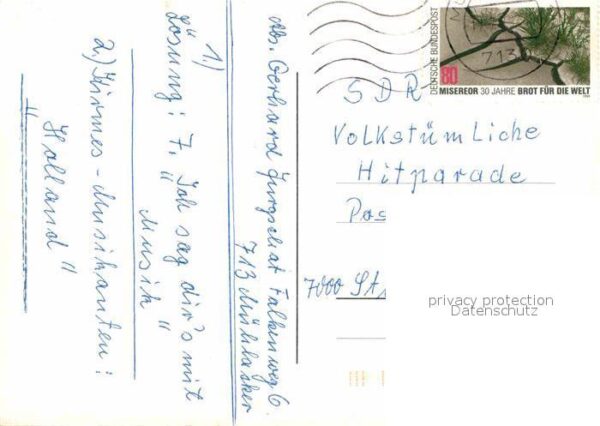 Abs. Gerhard Jurgschat Falkenweg 6
713 Mühlacker
1.)
Lösung: 7. "Ich sag dir's mit
Musik"
2.) Kirmes-Musikanten:
"Holland"
DEUTSCHE BUNDESPOST
80
MISEREOR 30 JAHRE BROT FÜR DIE WELT
713
SDR
Volkstümliche
Hitparade
Pos
7000 St
privacy protection
Datenschutz